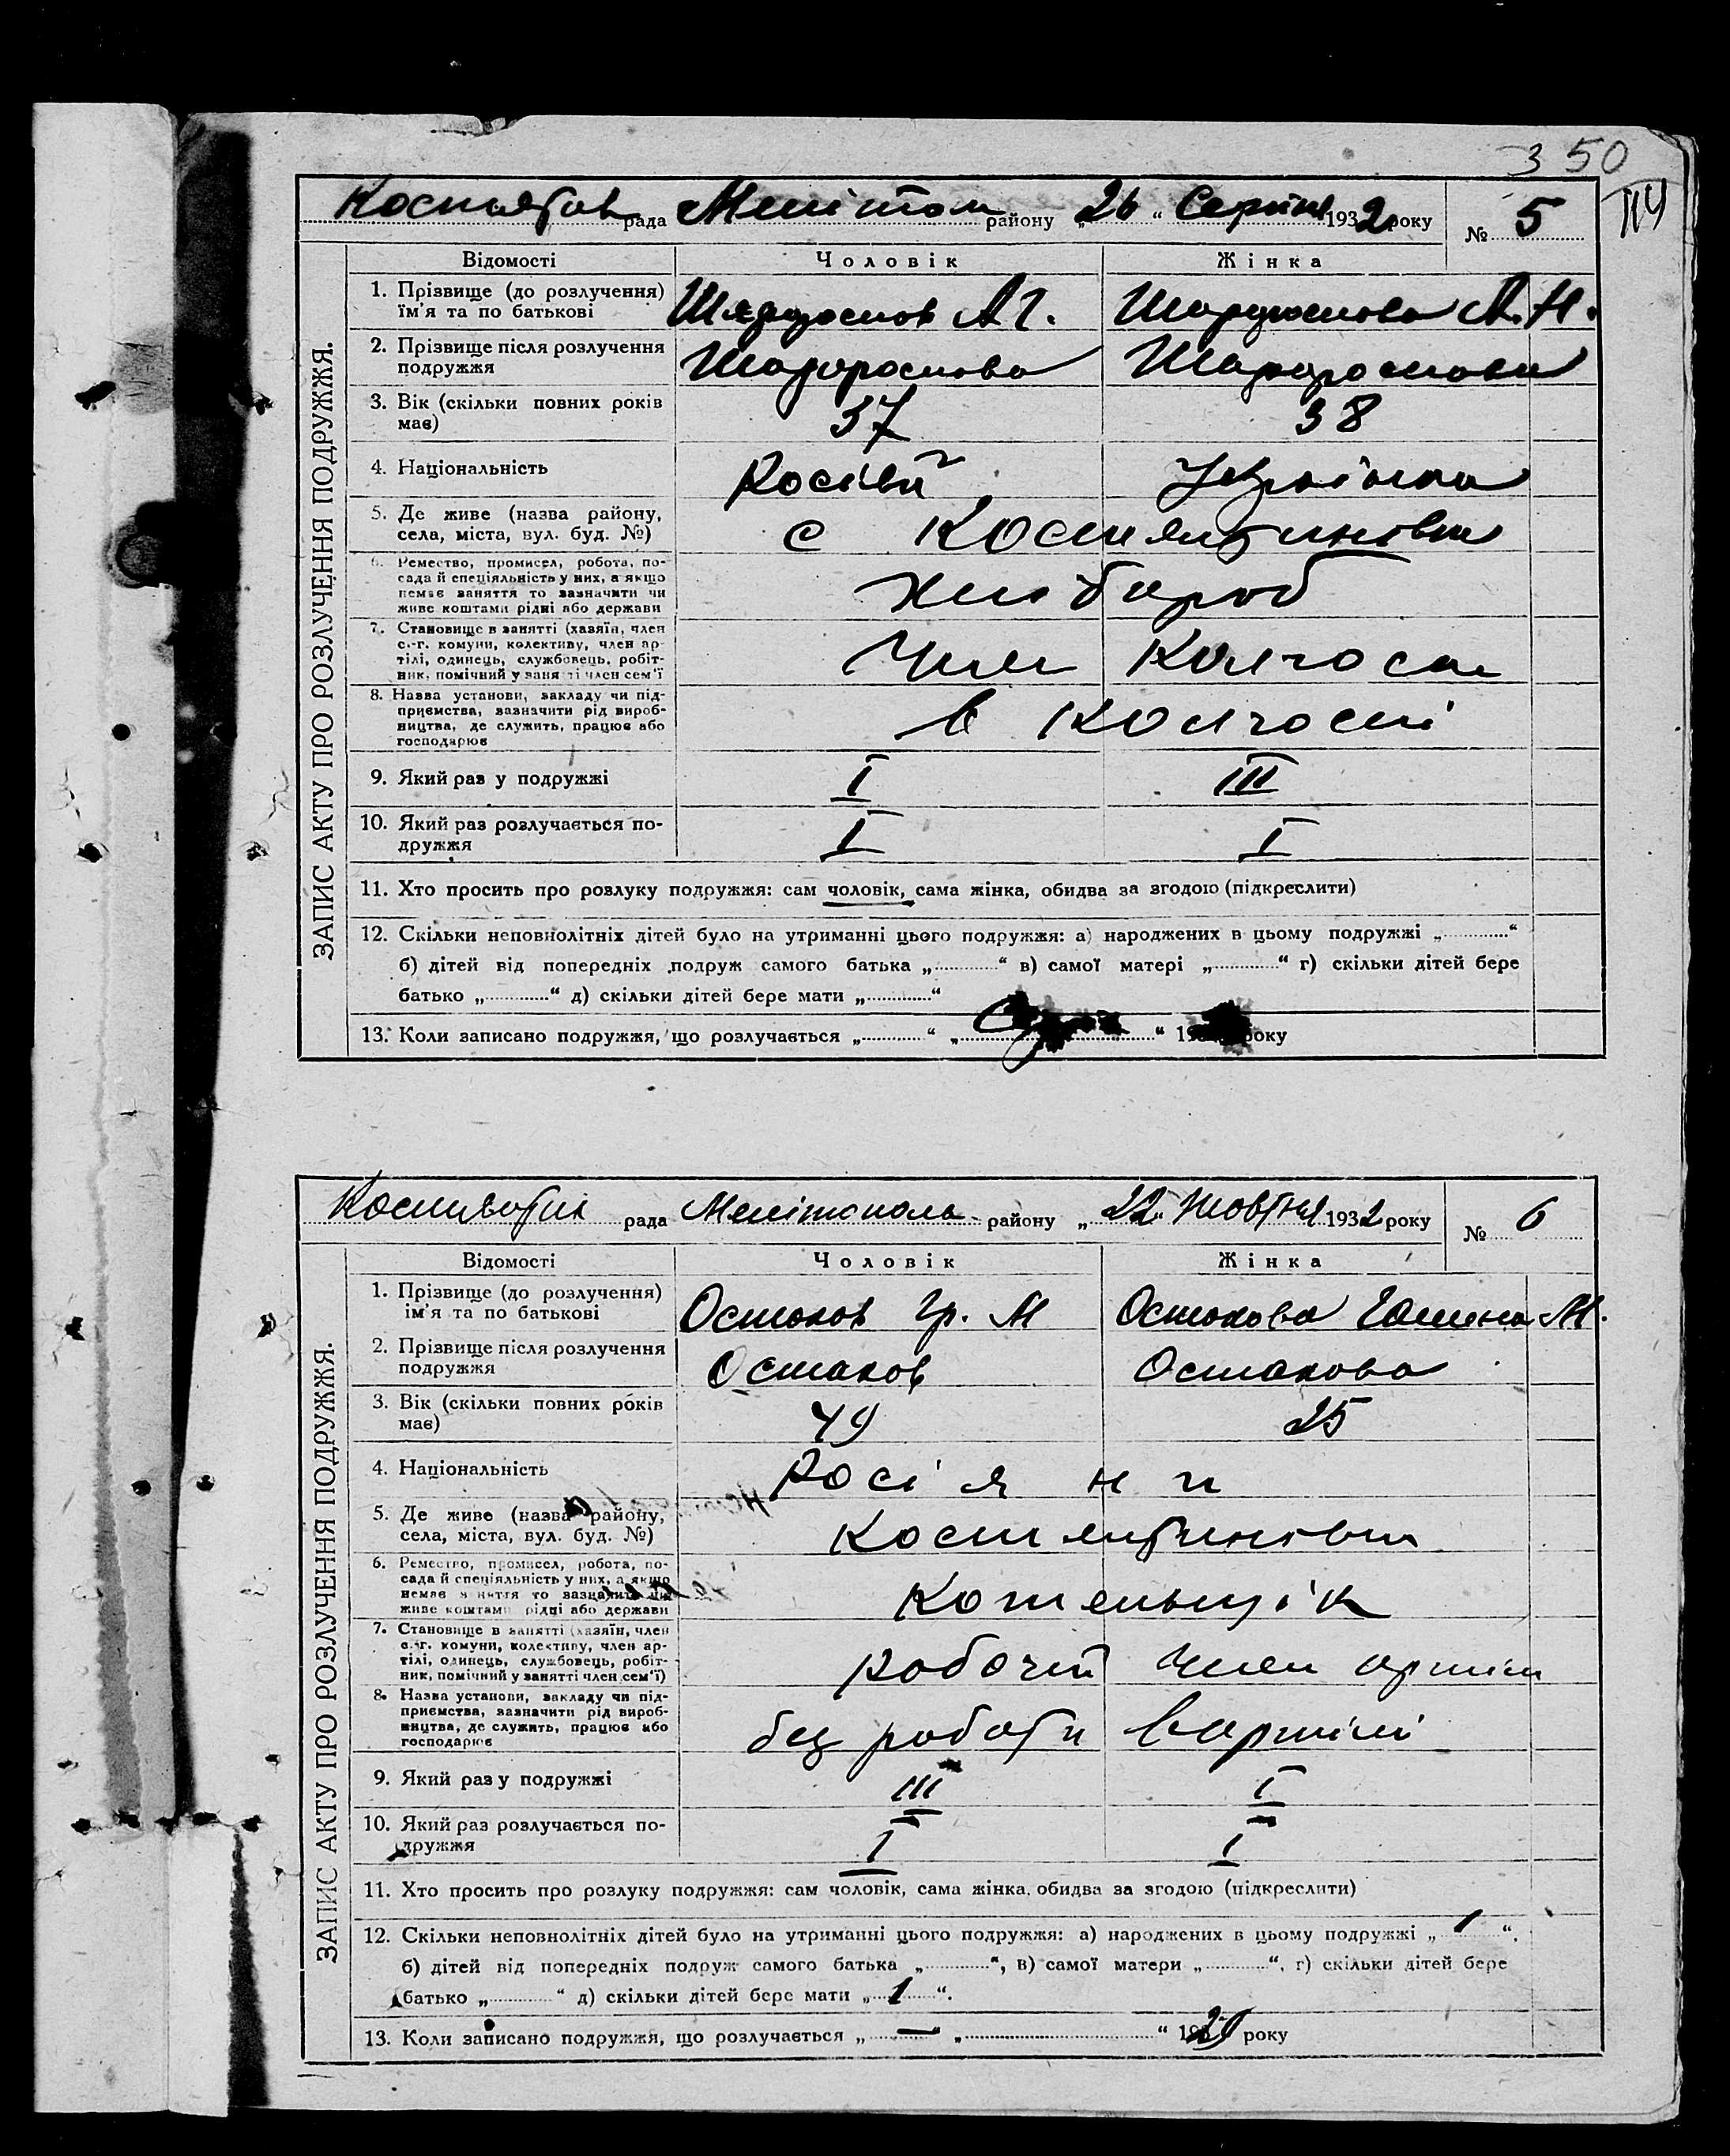 3 50
рада Мелітоп району „26“ Серпня 1932 року № 5
ЗАПИС АКТУ ПРО РОЗЛУЧЕННЯ ПОДРУЖЖЯ.
Відомості Чоловік Жінка
1. Прізвище (до розлучення) ім'я та по батькові А. Г. А. Н.
2. Прізвище після розлучення подружжя
3. Вік (скільки повних років має) 37 38
4. Національність Українка
5. Де живе (назва району, села, міста, вул. буд. №) с Костянтинівка
6. Ремество, промисел, робота, по-
сада й спеціяльність у них, а якщо
немає заняття то зазначити чи
живе коштами рідні або держави Хлібороб
7. Становище в занятті (хазяїн, член
с.-г. комуни, колективу, член ар-
тілі, одинець, службовець, робіт-
ник, помічний у занятті член сем'ї Член Колгоспа
8. Назва установи, закладу чи під-
приємства, зазначити рід вироб-
ництва, де служить, працює або
господарює в Колгоспі
9. Який раз у подружжі I III
10. Який раз розлучається по-
дружжя I I
11. Хто просить про розлуку подружжя: сам чоловік, сама жінка, обидва за згодою (підкреслити)
12. Скільки неповнолітніх дітей було на утриманні цього подружжя: а) народжених в цьому подружжі „ “
б) дітей від попередніх подруж самого батька „ “ в) самої матері „ “ г) скільки дітей бере
батько „ “ д) скільки дітей бере мати „ “
13. Коли записано подружжя, що розлучається „ “ „ “ року
рада Мелітополь району „22“ Жовтня 1932 року № 6
ЗАПИС АКТУ ПРО РОЗЛУЧЕННЯ ПОДРУЖЖЯ.
Відомості Чоловік Жінка
1. Прізвище (до розлучення) ім'я та по батькові Остапов Гр. М Остапова М.
2. Прізвище після розлучення подружжя Остапов Остапова
3. Вік (скільки повних років має) 49 25
4. Національність Росіяни
5. Де живе (назва району, села, міста, вул. буд. №) Костянтинівка
6. Ремество, промисел, робота, по-
сада й спеціяльність у них, а якщо
немає заняття то зазначити чи
живе коштами рідні або держави Котельщік
7. Становище в занятті (хазяїн, член
с.-г. комуни, колективу, член ар-
тілі, одинець, службовець, робіт-
ник, помічний у занятті член сем'ї) робочій Член артілі
8. Назва установи, закладу чи під-
приємства, зазначити рід вироб-
ництва, де служить, працює або
господарює без роботи в артілі
9. Який раз у подружжі III I
10. Який раз розлучається по-
дружжя I I
11. Хто просить про розлуку подружжя: сам чоловік, сама жінка, обидва за згодою (підкреслити)
12. Скільки неповнолітніх дітей було на утриманні цього подружжя: а) народжених в цьому подружжі „1“,
б) дітей від попередніх подруж самого батька „ “, в) самої матери „ “, г) скільки дітей бере
батько „ “ д) скільки дітей бере мати „1“.
13. Коли записано подружжя, що розлучається „—“ „ “ року